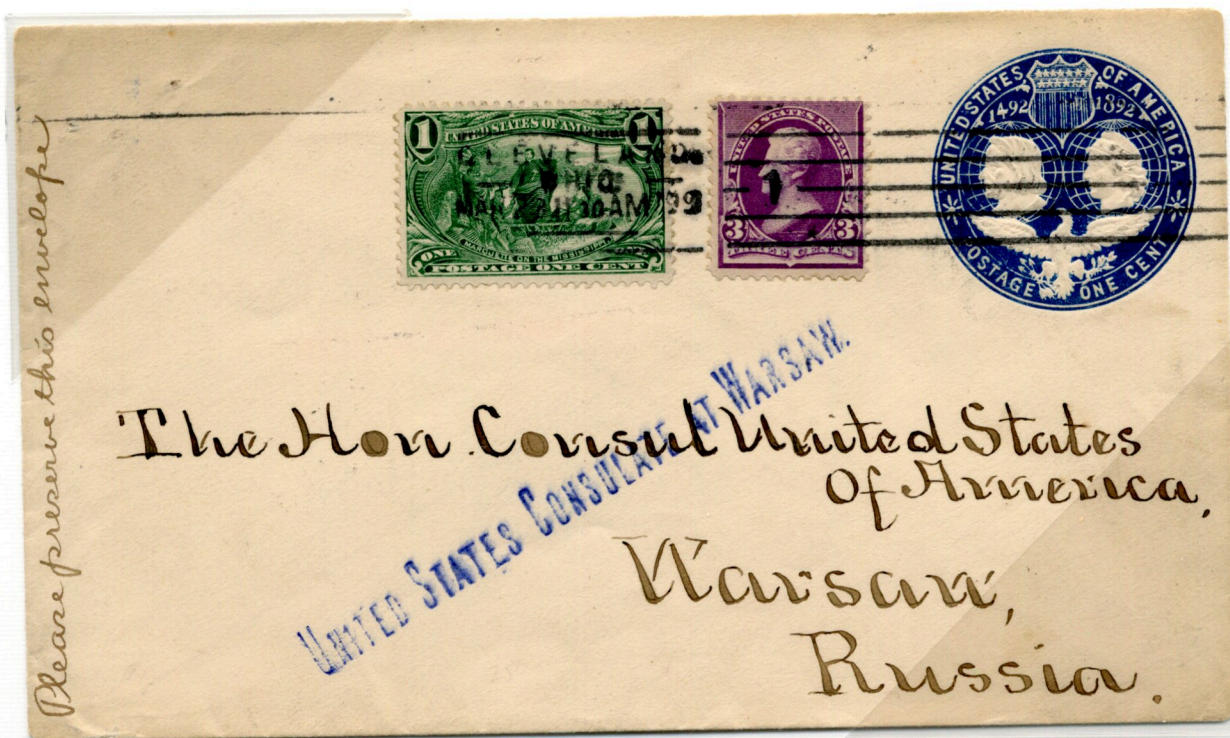 Please preserve this envelope
1 UNITED STATES OF AMERICA 1
MARQUETTE ON THE MISSISSIPPI.
ONE
POSTAGE ONE CENT
CLEVELAND
OHIO
11 30 AM '99
1
UNITED STATES POSTAGE
3 3
THREE CENTS
UNITED STATES OF AMERICA
1492 1892
POSTAGE ONE CENT
UNITED STATES CONSULATE AT WARSAW.
The Hon. Consul United States
Of America,
Warsaw,
Russia.